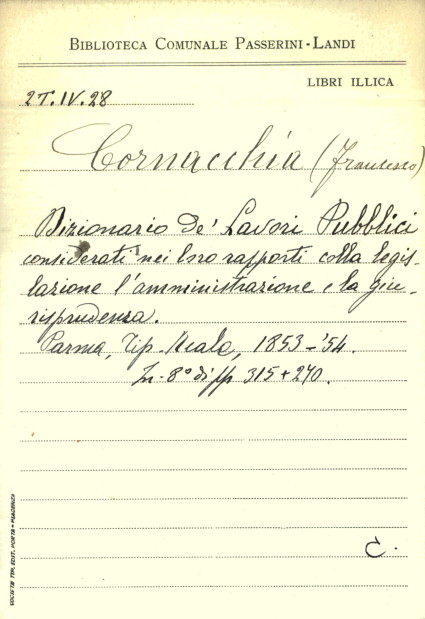 BIBLIOTECA COMUNALE PASSERINI-LANDI
LIBRI ILLICA
2T.IV.28
Cornacchia (Francesco)
Dizionario de' Lavori Pubblici
considerati nei loro rapporti colla legis-
lazione l'amministrazione e la giu-
risprudenza.
Parma, Tip. Reale, 1853-'54.
In-8° di pp 315+270.
C.
SOCIETÀ TIP. EDIT. PORTA - PIACENZA